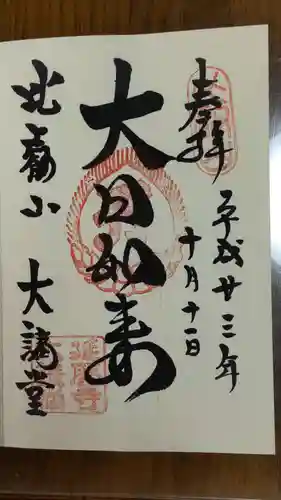 奉拝
平成廿三年
十月十一日
大日如来
比叡山 大講堂